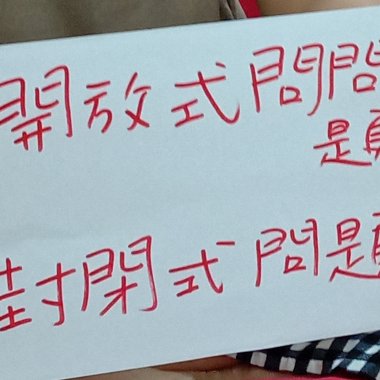 開放式問問
題
封閉式問題